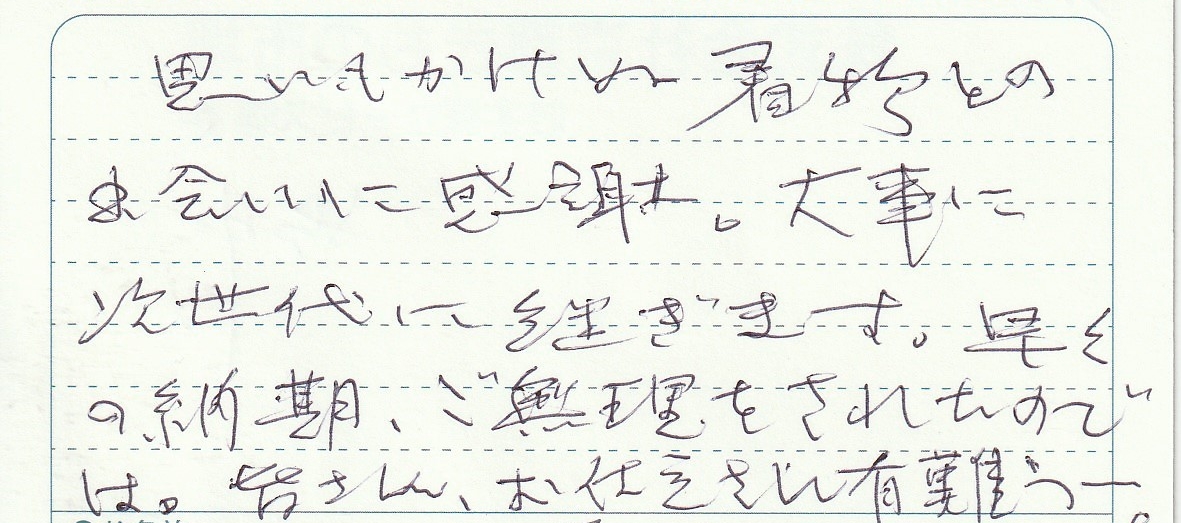 思いもかけぬ着物との
出会いに感謝。大事に
次世代に継ぎます。早く
の納期、ご無理をされたので
は。皆さん、お仕立さん有難うー。